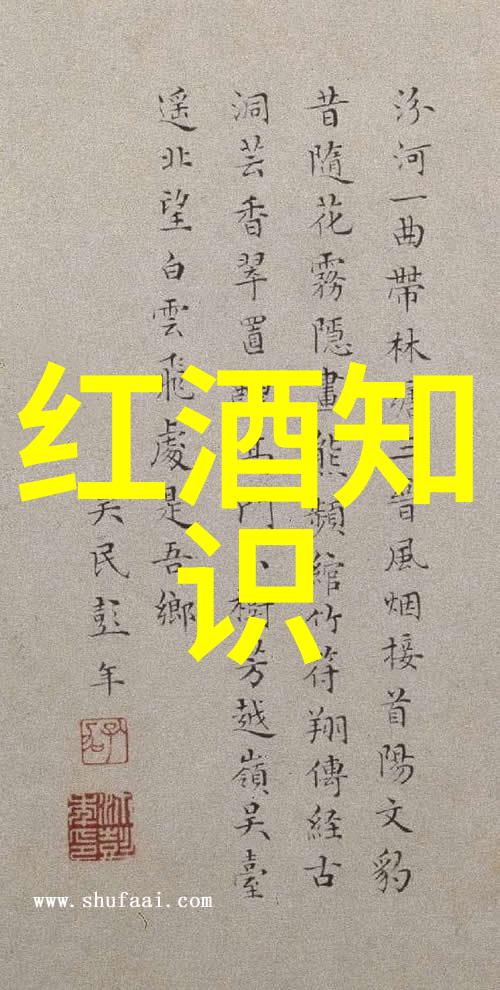 红酒知
识
汾河一曲帶林塘三晉風烟接首陽文豹
昔隨花霧隱畫熊頻綰竹符翔傳經古
洞芸香翠置門樹芳越嶺吳臺
遥北望白雲飛處是吾鄉
吳民彭年
www.shufaai.com